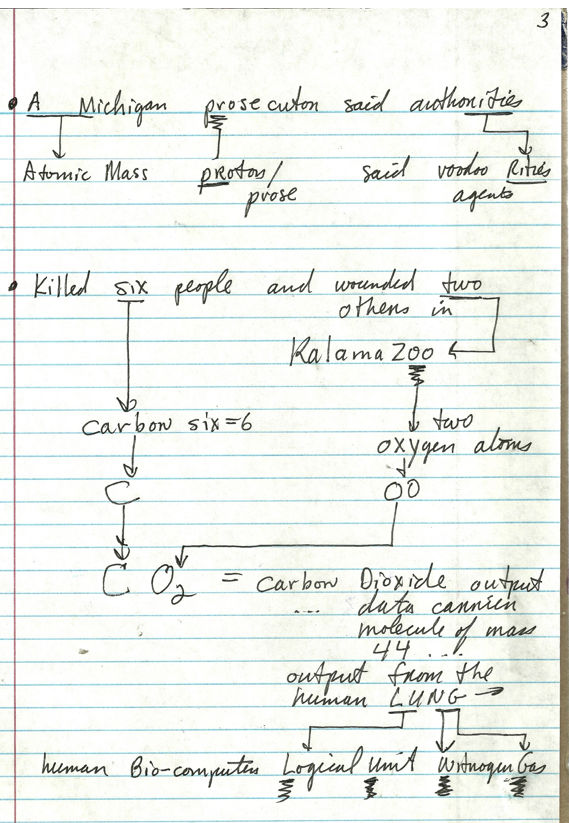 3
• A Michigan prosecuton said authonities
Atomic Mass proton/ said voodoo Rities
prose agents
• Killed six people and wounded two
others in
KalamaZoo
carbon six=6 two
oxygen atoms
C OO
C O2 = carbon Dioxide output
... data cannien
molecule of mass
44 ...
output from the
human LUNG →
human Bio-computen Logical Unit Nitnogen Gas